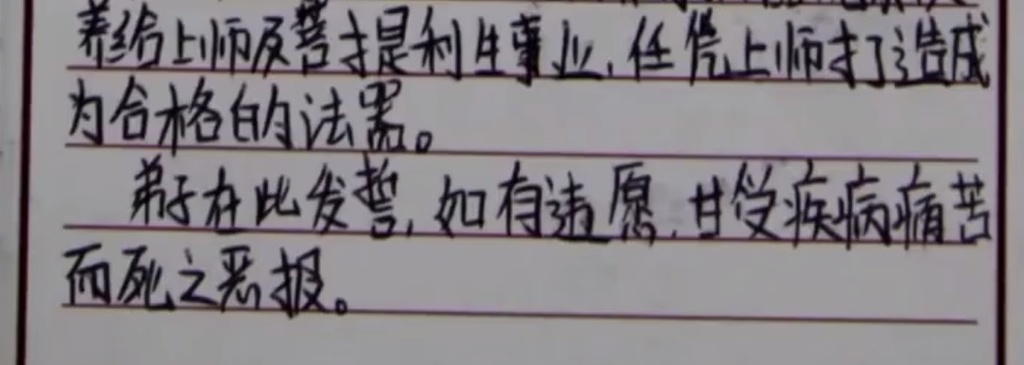 养给上师及菩提利生事业,任凭上师打造成
为合格的法器。
弟子在此发誓,如有违愿,甘受疾病痛苦
而死之恶报。